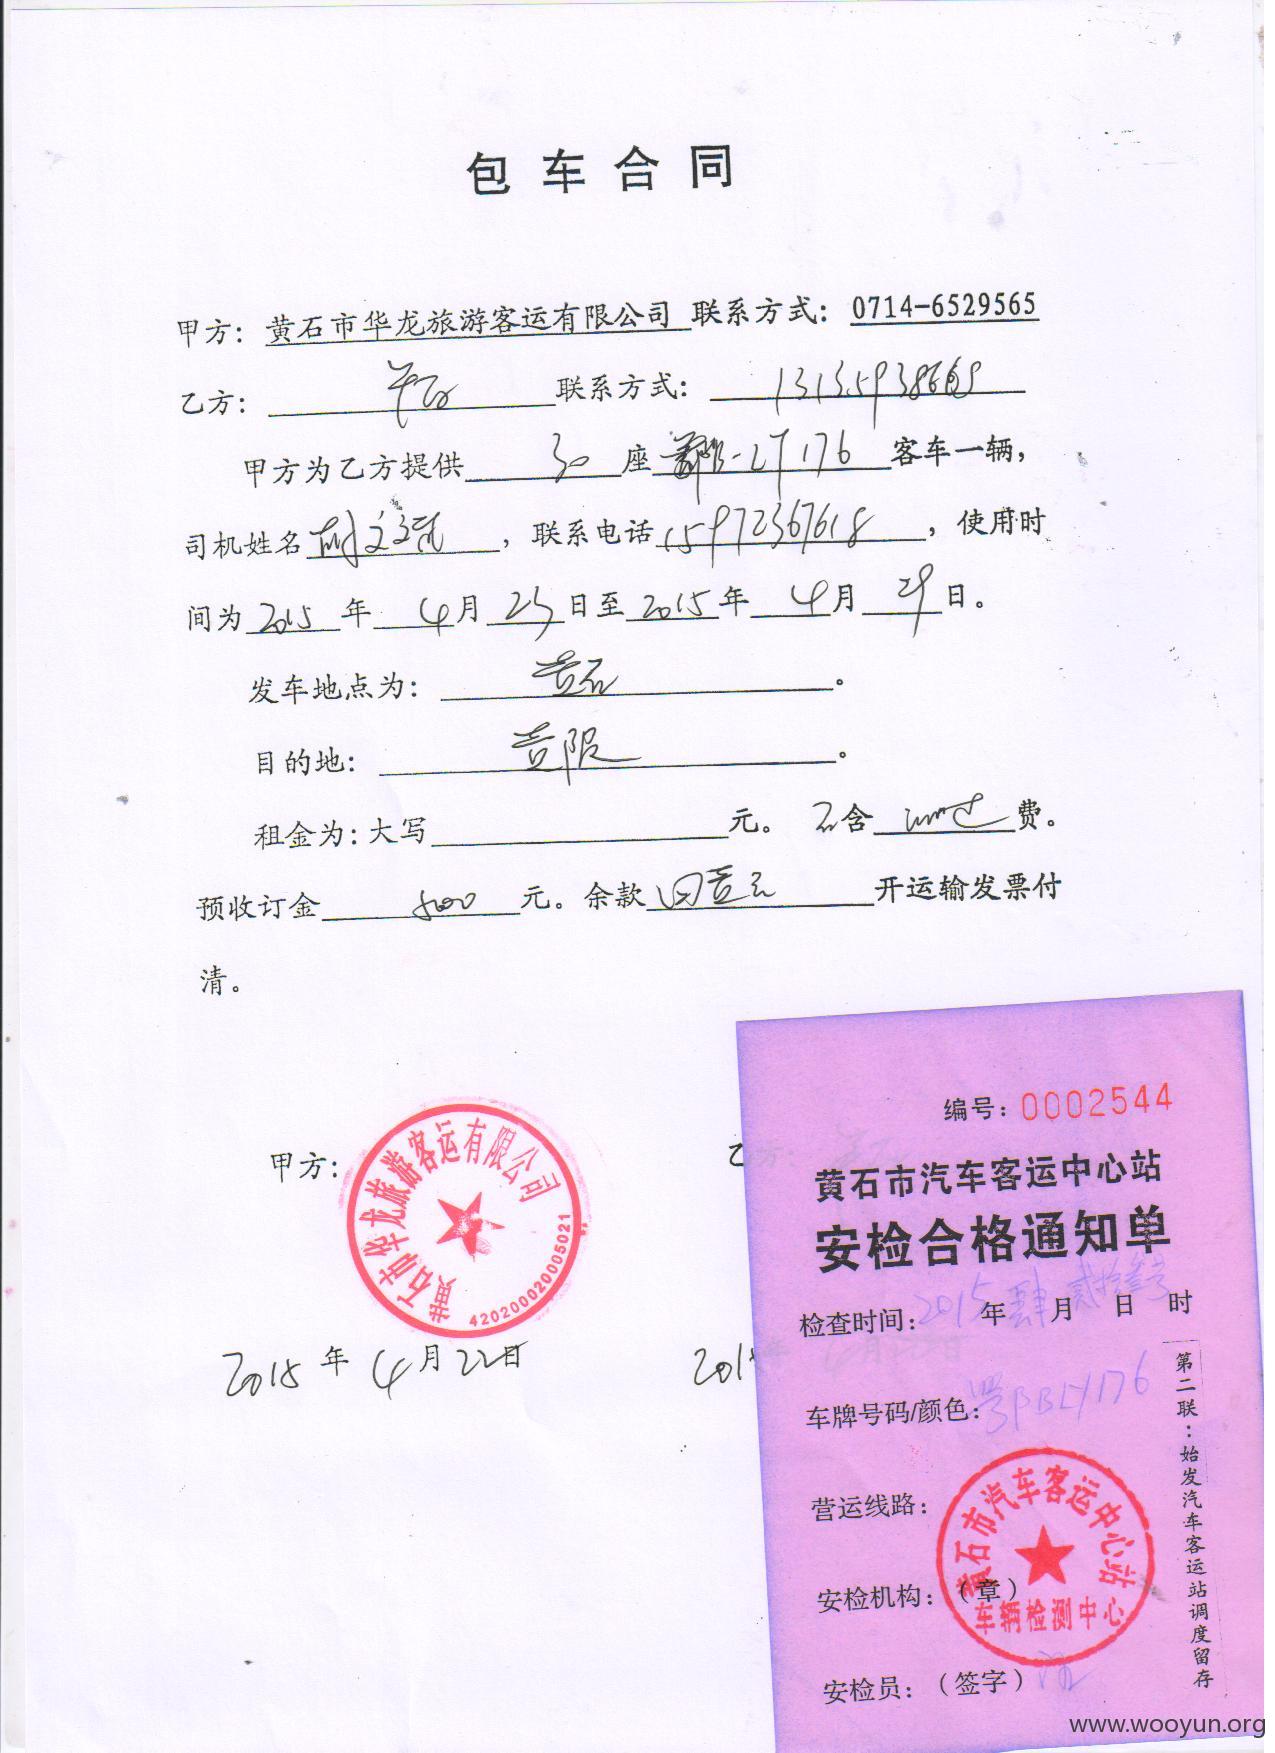 包车合同
甲方：黄石市华龙旅游客运有限公司 联系方式：0714-6529565
乙方： 联系方式：13135938669
甲方为乙方提供 30 座 鄂B-LY176 客车一辆，
司机姓名 ，联系电话 15972367618 ，使用时
间为 2015 年 4 月 23 日至 2015 年 4 月 29 日。
发车地点为：黄石。
目的地：黄陂。
租金为：大写 元。不含 费。
预收订金 元。余款 回黄石 开运输发票付
清。
甲方：
乙方：
黄石市华龙旅游客运有限公司
420200020005021
2015 年 4 月 22日
201
编号：0002544
黄石市汽车客运中心站
安检合格通知单
检查时间：2015 年 肆 月 贰拾叁号 日 时
车牌号码/颜色：鄂BLY176
营运线路：
安检机构：（章）
安检员：（签字）
黄石市汽车客运中心站
车辆检测中心
第二联：始发汽车客运站调度留存
www.wooyun.org